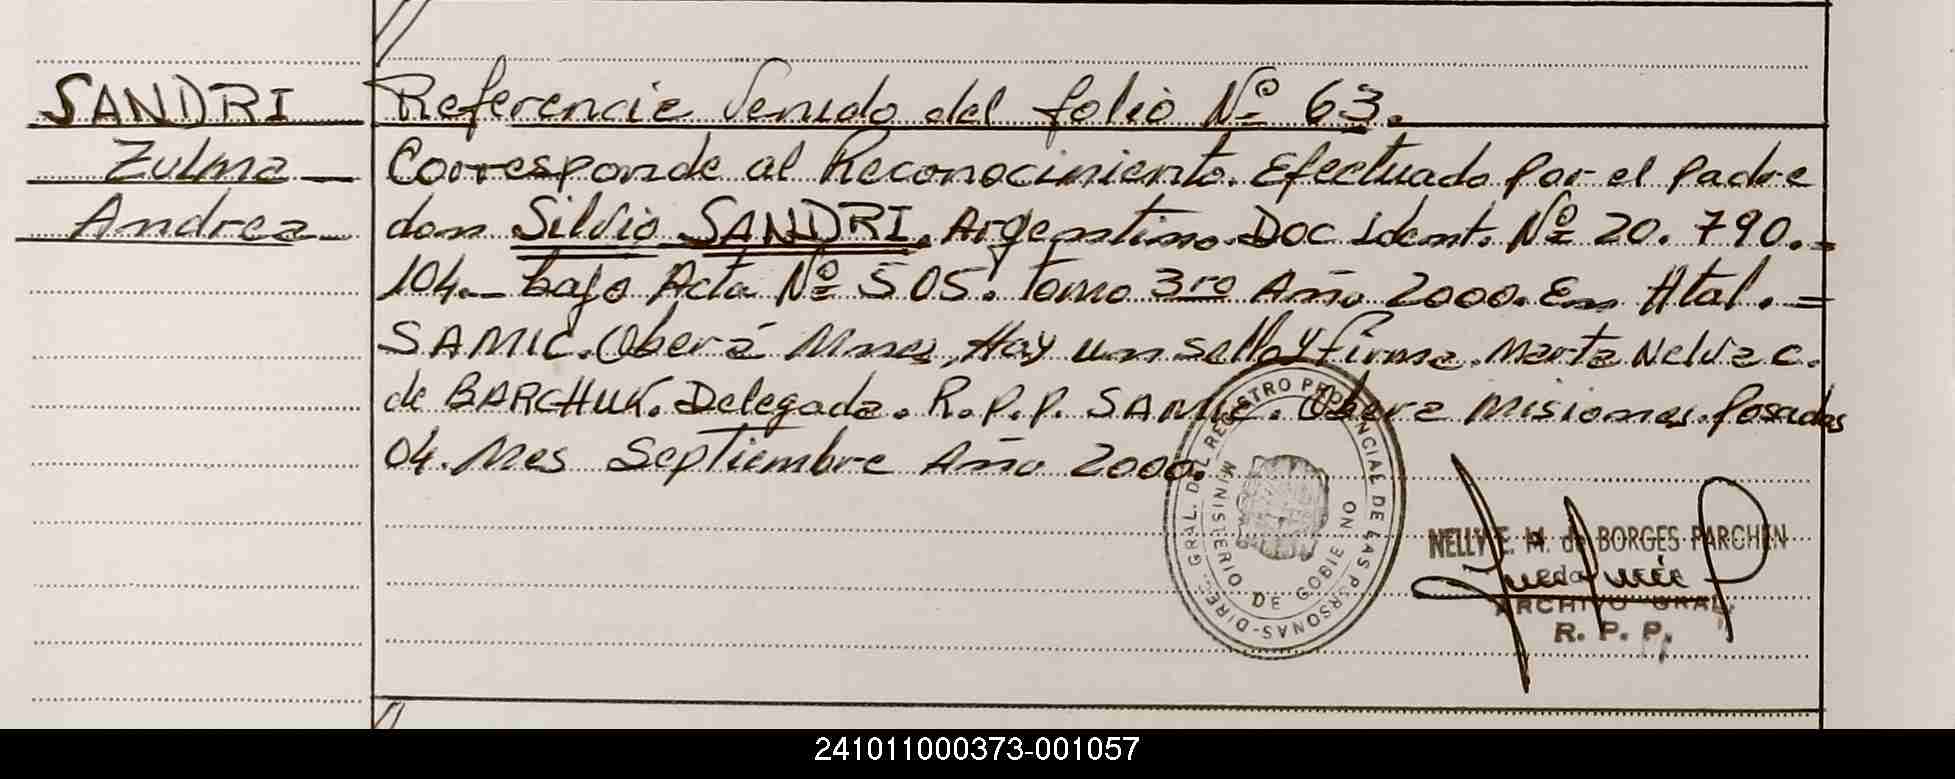 SANDRI
Zulma
Andrea
Referencia Venido del folio Nº 63.
Corresponde al Reconocimiento. Efectuado por el padre
don Silvio SANDRI. Argentino. Doc Ident. Nº 20.790.=
104.— bajo Acta Nº 505. Tomo 3ro Año 2000. En Htal.=
SAMIC. Oberá Mnes, Hay un sello y firma. Marta Nelida C.
de BARCHUK. Delegada. R.P.P. SAMIC. Oberá Misiones. Posadas
04. Mes Septiembre Año 2000.
DIREC. GRAL. DEL REGISTRO PROVINCIAL DE LAS PERSONAS-
MINISTERIO DE GOBIERNO
NELLY E. M. de BORGES PARCHEN
ARCHIVO GRAL.
R. P. P.
241011000373-001057